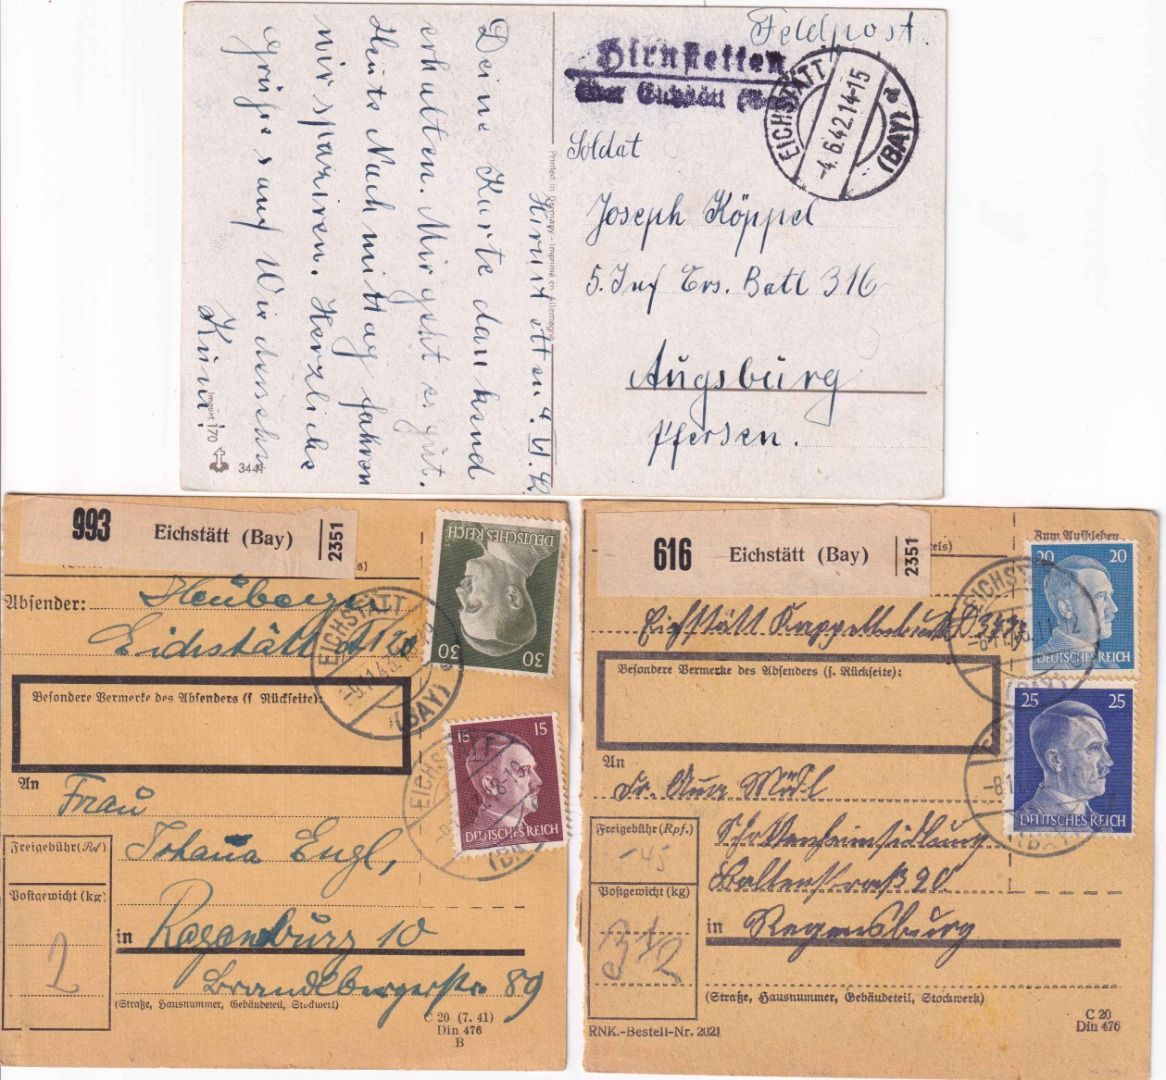 Feldpost.
Hirnstetten
über Eichstätt
EICHSTÄTT
-4.6.42.14-15
(BAY)
d
Soldat
Joseph Köppel
5. Inf Ers. Batl 316
Augsburg
Pfersen.
Printed in Germany - Imprimé en Allemagne
Hirnstetten 4. VI. 42
Deine Karte dankend
erhalten. Mir geht es gut.
Heute Nachmittag fahren
wir spaziren. Herzliche
Grüße s auf Wiedersehn
Import 170
3441
993
Eichstätt (Bay)
2351
Absender:
Heuberger
Eichstätt A 120
DEUTSCHES REICH
30
30
EICHSTÄTT
(BAY)
Besondere Vermerke des Absenders (s Rückseite):
15
15
DEUTSCHES REICH
EICHSTÄTT
An
Frau
Johana Engl,
Freigebühr (Rpf)
Postgewicht (kg)
2
in Regensburg 10
Brandlbergerstr. 89
(Straße, Hausnummer, Gebäudeteil, Stockwerk)
C 20 (7. 41)
Din 476
B
616
Eichstätt (Bay)
2351
Zum Aufkleben
20
20
DEUTSCHES REICH
EICHSTÄTT
(BAY)
Eichstätt
Besondere Vermerke des Absenders (s. Rückseite):
25
25
DEUTSCHES REICH
An
Mödl
Freigebühr (Rpf.)
-45
Schottenheimsiedlung
Postgewicht (kg)
3 1/2
in Regensburg
(Straße, Hausnummer, Gebäudeteil, Stockwerk)
RNK.-Bestell-Nr. 2021
C 20
Din 476